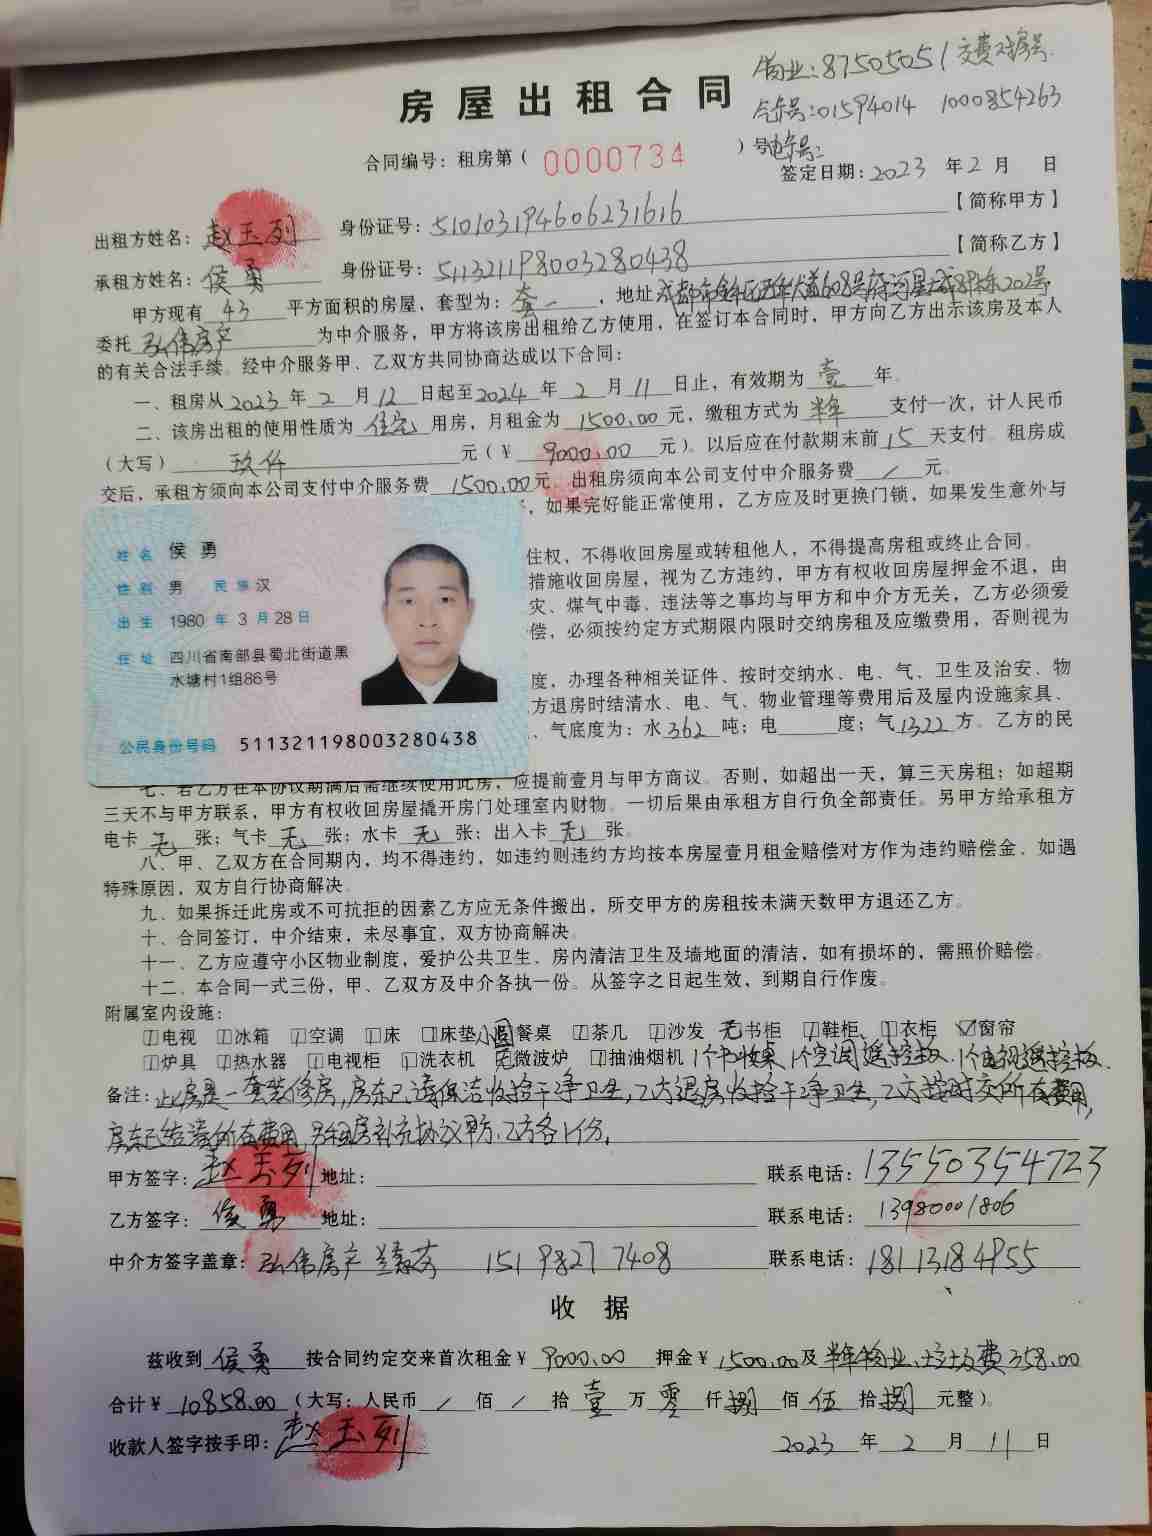 房屋出租合同
物业:87505051交费对房号.
气卡号:01594014 1000854263
合同编号:租房第( 0000734 )号 电卡号:
签定日期:2023年2月 日
出租方姓名:赵玉列 身份证号:510103194606231616 【简称甲方】
承租方姓名:侯勇 身份证号:511321198003280438 【简称乙方】
甲方现有 43 平方面积的房屋,套型为:套一,地址 8栋202号
委托 弘伟房产 为中介服务,甲方将该房出租给乙方使用,在签订本合同时,甲方向乙方出示该房及本人
的有关合法手续。经中介服务甲、乙双方共同协商达成以下合同:
一、租房从2023年2月12日起至2024年2月11日止,有效期为 壹 年。
二、该房出租的使用性质为 住宅 用房,月租金为 1500.00 元,缴租方式为 半年 支付一次,计人民币
(大写) 玖仟 元(¥ 9000.00 元)。以后应在付款期末前 15 天支付。租房成
交后,承租方须向本公司支付中介服务费 1500.00元。出租房须向本公司支付中介服务费 / 元。
,如果完好能正常使用,乙方应及时更换门锁,如果发生意外与
住权,不得收回房屋或转租他人,不得提高房租或终止合同。
措施收回房屋,视为乙方违约,甲方有权收回房屋押金不退,由
灾、煤气中毒、违法等之事均与甲方和中介方无关,乙方必须爱
偿,必须按约定方式期限内限时交纳房租及应缴费用,否则视为
度,办理各种相关证件、按时交纳水、电、气、卫生及治安、物
方退房时结清水、电、气、物业管理等费用后及屋内设施家具、
、气底度为:水362吨;电 度;气1322方。乙方的民
姓名 侯勇
性别 男 民族 汉
出生 1980年3月28日
住址 四川省南部县蜀北街道黑
水塘村1组86号
公民身份号码 511321198003280438
七、若乙方在本协议期满后需继续使用此房,应提前壹月与甲方商议。否则,如超出一天,算三天房租;如超期
三天不与甲方联系,甲方有权收回房屋撬开房门处理室内财物。一切后果由承租方自行负全部责任。另甲方给承租方
电卡 无 张;气卡 无 张;水卡 无 张;出入卡 无 张。
八、甲、乙双方在合同期内,均不得违约,如违约则违约方均按本房屋壹月租金赔偿对方作为违约赔偿金。如遇
特殊原因,双方自行协商解决。
九、如果拆迁此房或不可抗拒的因素乙方应无条件搬出,所交甲方的房租按未满天数甲方退还乙方。
十、合同签订,中介结束,未尽事宜,双方协商解决。
十一、乙方应遵守小区物业制度,爱护公共卫生、房内清洁卫生及墙地面的清洁,如有损坏的,需照价赔偿。
十二、本合同一式三份,甲、乙双方及中介各执一份。从签字之日起生效,到期自行作废。
附属室内设施:
1电视 1冰箱 1空调 1床 1床垫 小圆餐桌 1茶几 1沙发 无书柜 1鞋柜、1衣柜 ✓窗帘
1炉具 1热水器 1电视柜 1洗衣机 无微波炉 1抽油烟机 1个书收桌 1个空调遥控板、1个电视遥控板.
备注:此房是一套装修房,房东已请保洁收捡干净卫生,乙方退房收捡干净卫生,乙方按时交所有费用,
房东已结清所有费用,另租房补充协议甲方、乙方各1份。
甲方签字:赵玉列 地址: 联系电话:13550354723
乙方签字:侯勇 地址: 联系电话:13980001806
中介方签字盖章:弘伟房产 15198277408 联系电话:18113184955
收据
兹收到 侯勇 按合同约定交来首次租金¥ 9000.00 押金¥ 1500.00及 半年物业、垃圾费358.00
合计¥ 10858.00 (大写:人民币 / 佰 / 拾 壹 万 零 仟 捌 佰 伍 拾 捌 元整)。
收款人签字按手印:赵玉列 2023年2月11日